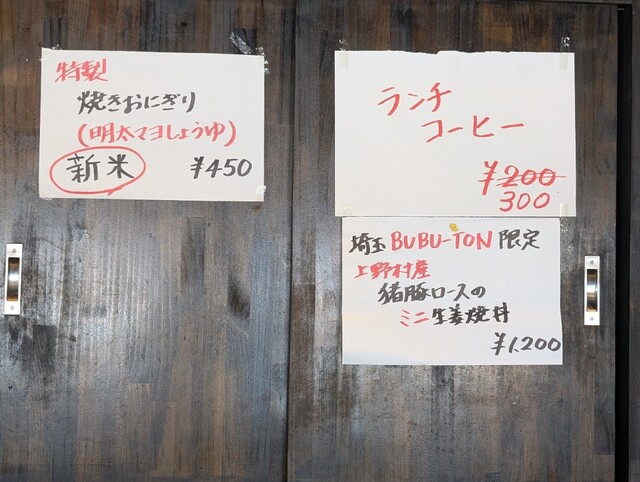 特製
焼きおにぎり
(明太マヨしょうゆ)
新米 ¥450
ランチ
コーヒー
¥200
300
埼玉 BUBU-TON 限定
上野村産
猪豚ロースの
ミニ生姜焼丼
¥1,200